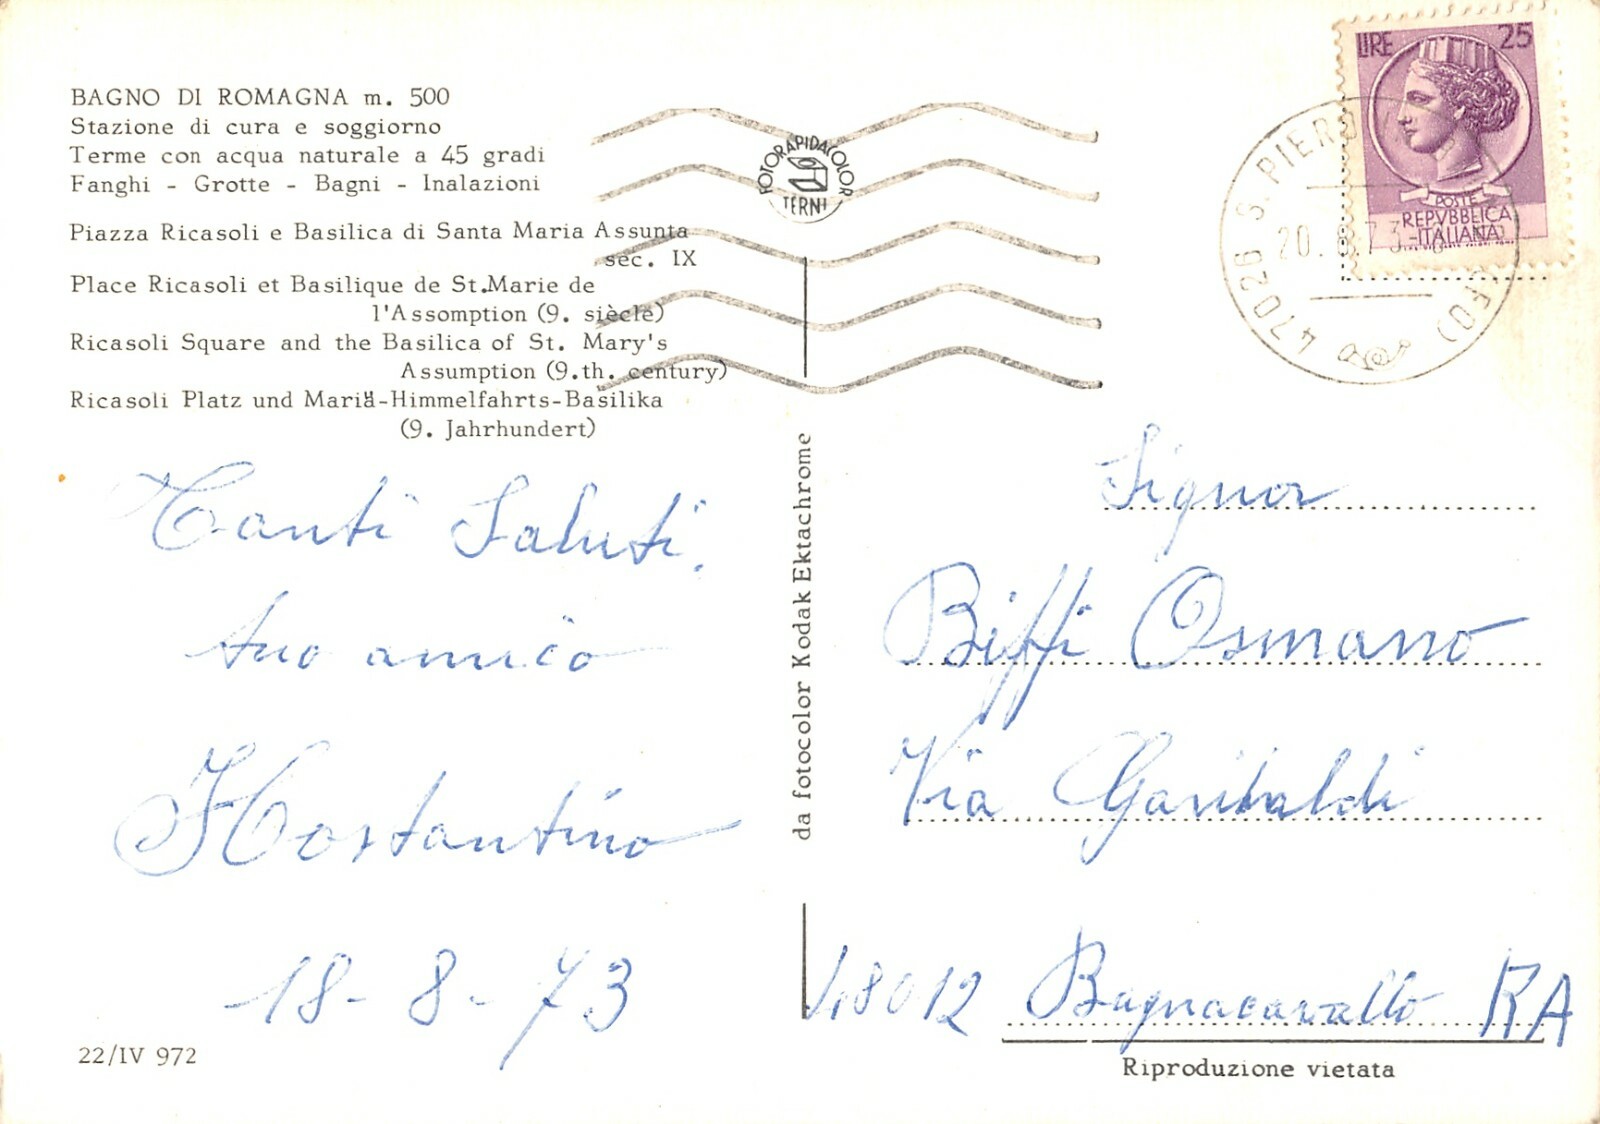 BAGNO DI ROMAGNA m. 500
Stazione di cura e soggiorno
Terme con acqua naturale a 45 gradi
Fanghi - Grotte - Bagni - Inalazioni
Piazza Ricasoli e Basilica di Santa Maria Assunta
sec. IX
Place Ricasoli et Basilique de St.Marie de
l'Assomption (9. siècle)
Ricasoli Square and the Basilica of St. Mary's
Assumption (9.th. century)
Ricasoli Platz und Mariä-Himmelfahrts-Basilika
(9. Jahrhundert)
FOTORAPIDACOLOR
TERNI
LIRE 25
POSTE
REPVBBLICA
ITALIANA
47026 S. PIERO
(FO)
Tanti Saluti.
tuo amico
Kostantino
18-8-73
22/IV 972
da fotocolor Kodak Ektachrome
Signor
Biffi Osmano
Via Garibaldi
48012 Bagnacavallo RA
Riproduzione vietata